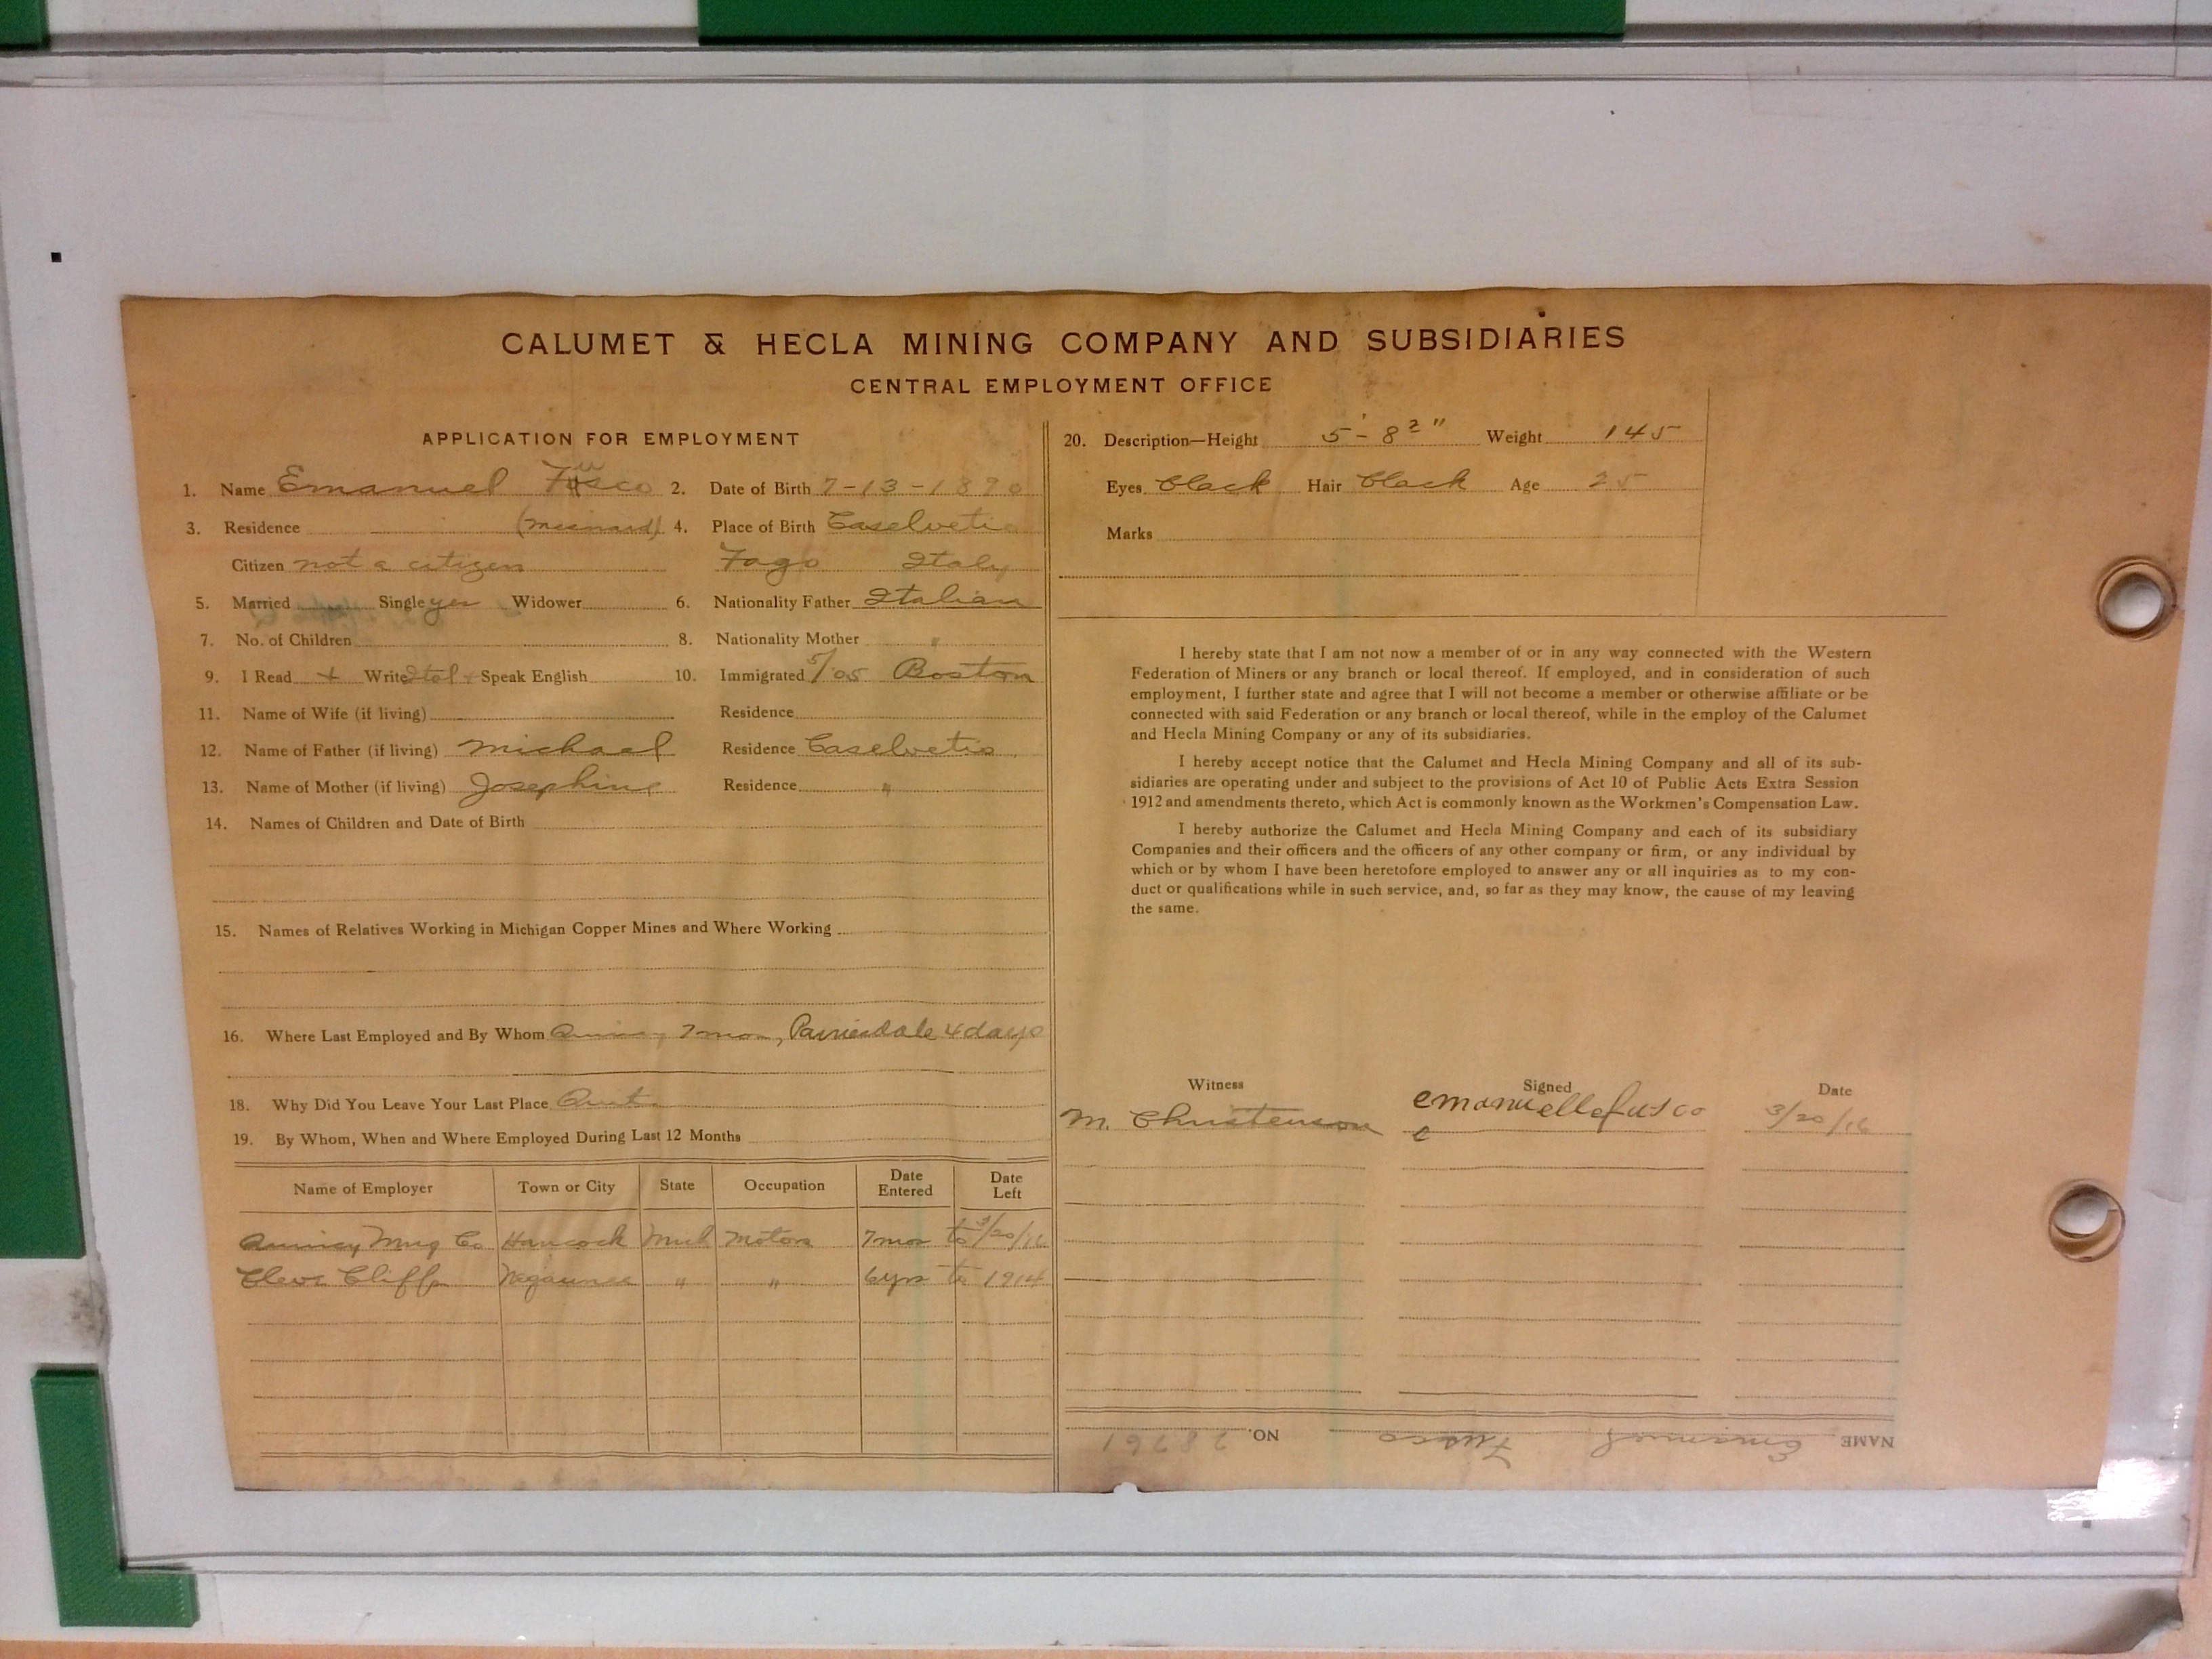 CALUMET & HECLA MINING COMPANY AND SUBSIDIARIES
CENTRAL EMPLOYMENT OFFICE
APPLICATION FOR EMPLOYMENT
1. Name Emanuel Fusco 2. Date of Birth 7-13-1890
3. Residence 4. Place of Birth Caselvetio
Citizen not a citizen Fago Italy
5. Married Single yes Widower 6. Nationality Father Italian
7. No. of Children 8. Nationality Mother "
9. I Read + Write Ital + Speak English 10. Immigrated 5/05 Boston
11. Name of Wife (if living) Residence
12. Name of Father (if living) Michael Residence Caselvetio
13. Name of Mother (if living) Josephine Residence "
14. Names of Children and Date of Birth
15. Names of Relatives Working in Michigan Copper Mines and Where Working
16. Where Last Employed and By Whom Quincy 7 mon, Painesdale 4 days
18. Why Did You Leave Your Last Place Quit
19. By Whom, When and Where Employed During Last 12 Months
Name of Employer Town or City State Occupation Date Entered Date Left
Quincy Mng Co Hancock Mich Motors 7 mos to 3/20/16
Cleve Cliffs Negaunee " " 6 yrs to 1914
20. Description—Height 5'-8 2" Weight 145
Eyes black Hair black Age 25
Marks
I hereby state that I am not now a member of or in any way connected with the Western
Federation of Miners or any branch or local thereof. If employed, and in consideration of such
employment, I further state and agree that I will not become a member or otherwise affiliate or be
connected with said Federation or any branch or local thereof, while in the employ of the Calumet
and Hecla Mining Company or any of its subsidiaries.
I hereby accept notice that the Calumet and Hecla Mining Company and all of its sub-
sidiaries are operating under and subject to the provisions of Act 10 of Public Acts Extra Session
1912 and amendments thereto, which Act is commonly known as the Workmen's Compensation Law.
I hereby authorize the Calumet and Hecla Mining Company and each of its subsidiary
Companies and their officers and the officers of any other company or firm, or any individual by
which or by whom I have been heretofore employed to answer any or all inquiries as to my con-
duct or qualifications while in such service, and, so far as they may know, the cause of my leaving
the same.
Witness Signed Date
M. Christenson emanuelle fusco 3/20/16
e
NAME Emanuel Fusco NO. 28261